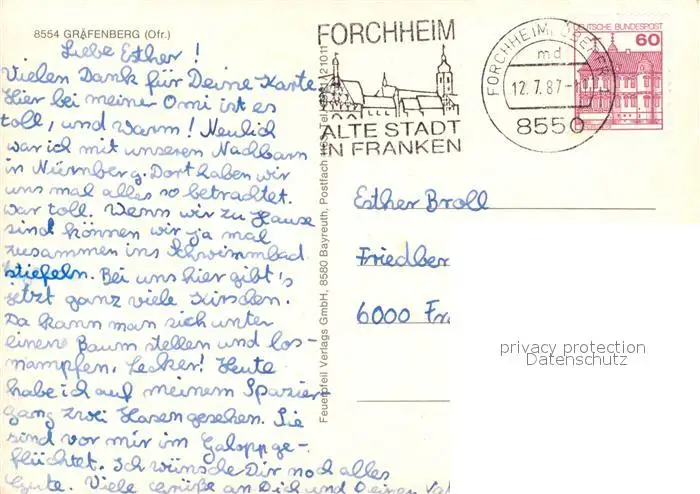 8554 GRÄFENBERG (Ofr.)
Liebe Esther!
Vielen Dank für Deine Karte
Hier bei meiner Omi ist es
toll, und warm! Neulich
war ich mit unseren Nachbarn
in Nürnberg. Dort haben wir
uns mal alles so betrachtet.
war toll. Wenn wir zu Hause
sind können wir ja mal
zusammen ins Schwimmbad
stiefeln. Bei uns hier gibt's
jetzt ganz viele Kirschen.
Da kann man sich unter
einen Baum stellen und los-
mampfen. Lecker! Heute
habe ich auf meinem Spazier
gang zwei Hasen gesehen. Sie
sind vor mir im Galopp ge-
flüchtet. Ich wünsche Dir noch alles
Gute. Viele Grüße an Dich und Deinen Vat
Feuerpfeil Verlags GmbH, 8580 Bayreuth, Postfach
FORCHHEIM
ALTE STADT
IN FRANKEN
FORCHHEIM, OBERFR
md
12.7.87-
8550
DEUTSCHE BUNDESPOST
60
Esther Broll
Friedber
6000 Fr
privacy protection
Datenschutz